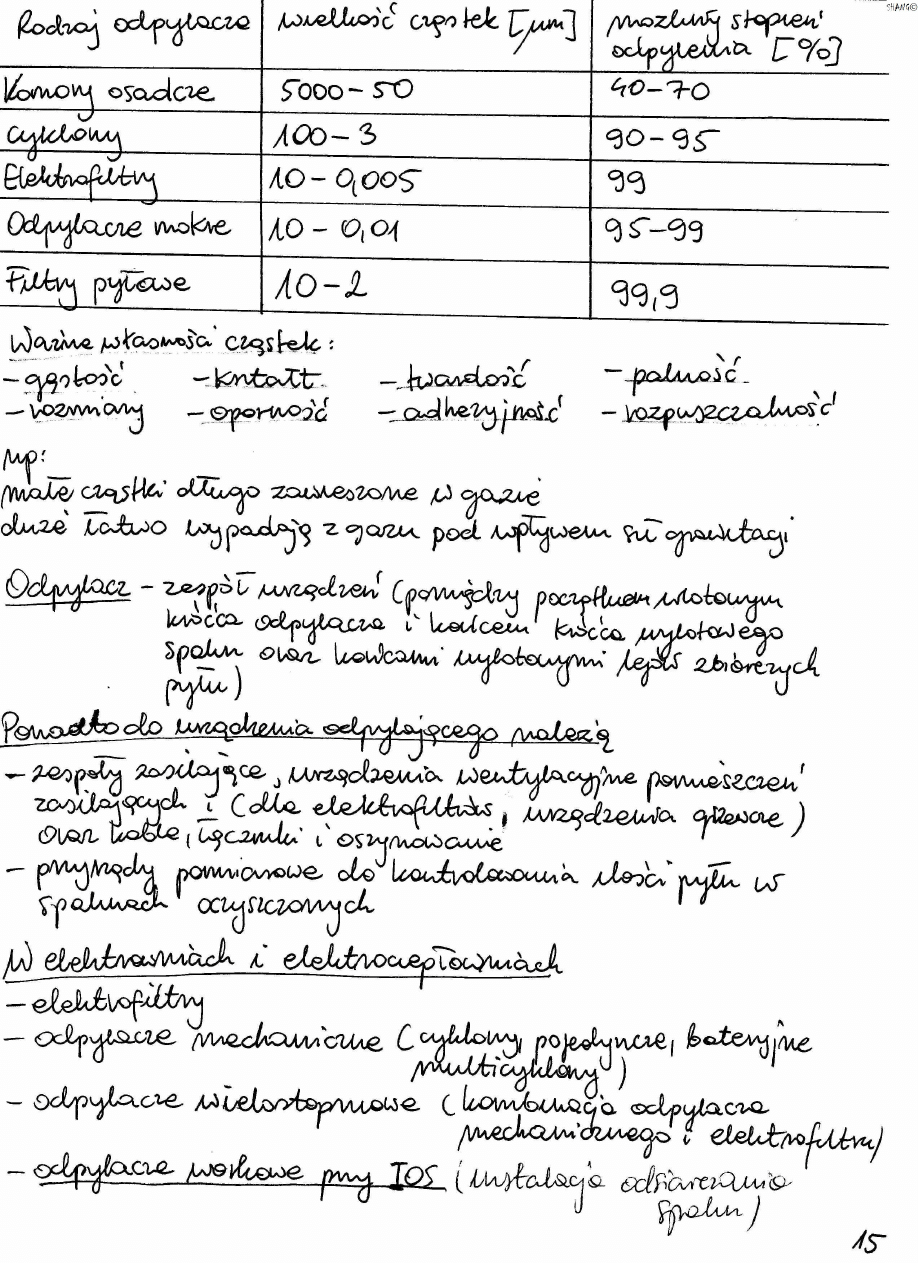 SHANG©
Rodzaj odpylacza | wielkość cząstek [μm] | możliwy stopień odpylenia [%]
Komory osadcze | 5000-50 | 40-70
cyklony | 100-3 | 90-95
Elektrofiltry | 10-0,005 | 99
Odpylacze mokre | 10-0,01 | 95-99
Filtry pyłowe | 10-2 | 99,9
Ważne własności cząstek:
-gęstość -kształt -twardość -palność
-rozmiary -oporność -adhezyjność -rozpuszczalność
np:
małe cząstki długo zawieszone w gazie
duże łatwo wypadają z gazu pod wpływem sił grawitacji
Odpylacz - zespół urządzeń (pomiędzy początkiem wlotowym
króćca odpylacza i końcem króćca wylotowego
spalin oraz końcami wylotowymi lejów zbiorczych
pyłu)
Ponadto do urządzenia odpylającego należą
- zespoły zasilające, urządzenia wentylacyjne pomieszczeń
zasilających i (dla elektrofiltrów, urządzenia grzewcze)
oraz kable, łączniki i oszynowanie
- przyrządy pomiarowe do kontrolowania ilości pyłu w
spalinach oczyszczonych
W elektrowniach i elektrociepłowniach
- elektrofiltry
- odpylacze mechaniczne (cyklony pojedyncze, bateryjne
multicyklony)
- odpylacze wielostopniowe (kombinacja odpylacza
mechanicznego i elektrofiltru)
- odpylacze workowe przy IOS (instalacja odsiarczania
spalin)
15